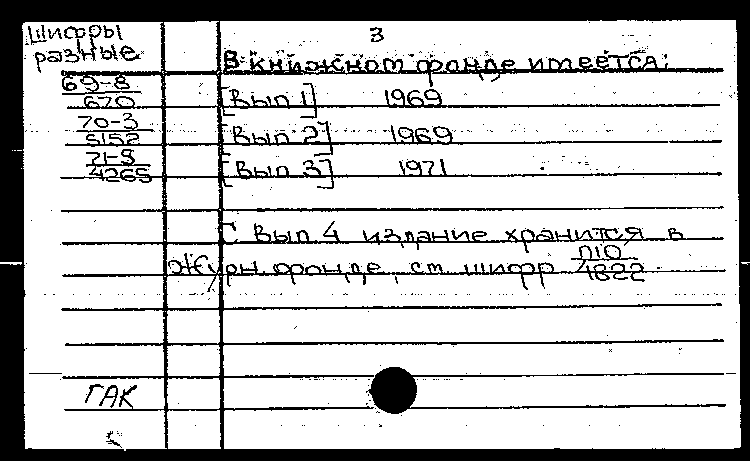 Шифры
разные
3
В книжном фонде имеется:
69-8
670
[Вып 1] 1969
70-3
5152
[Вып 2] 1969
71-5
4265
[Вып 3] 1971
С Вып. 4 издание хранится в
Журн. фонде, ст. шифр П10
1822
ГАК